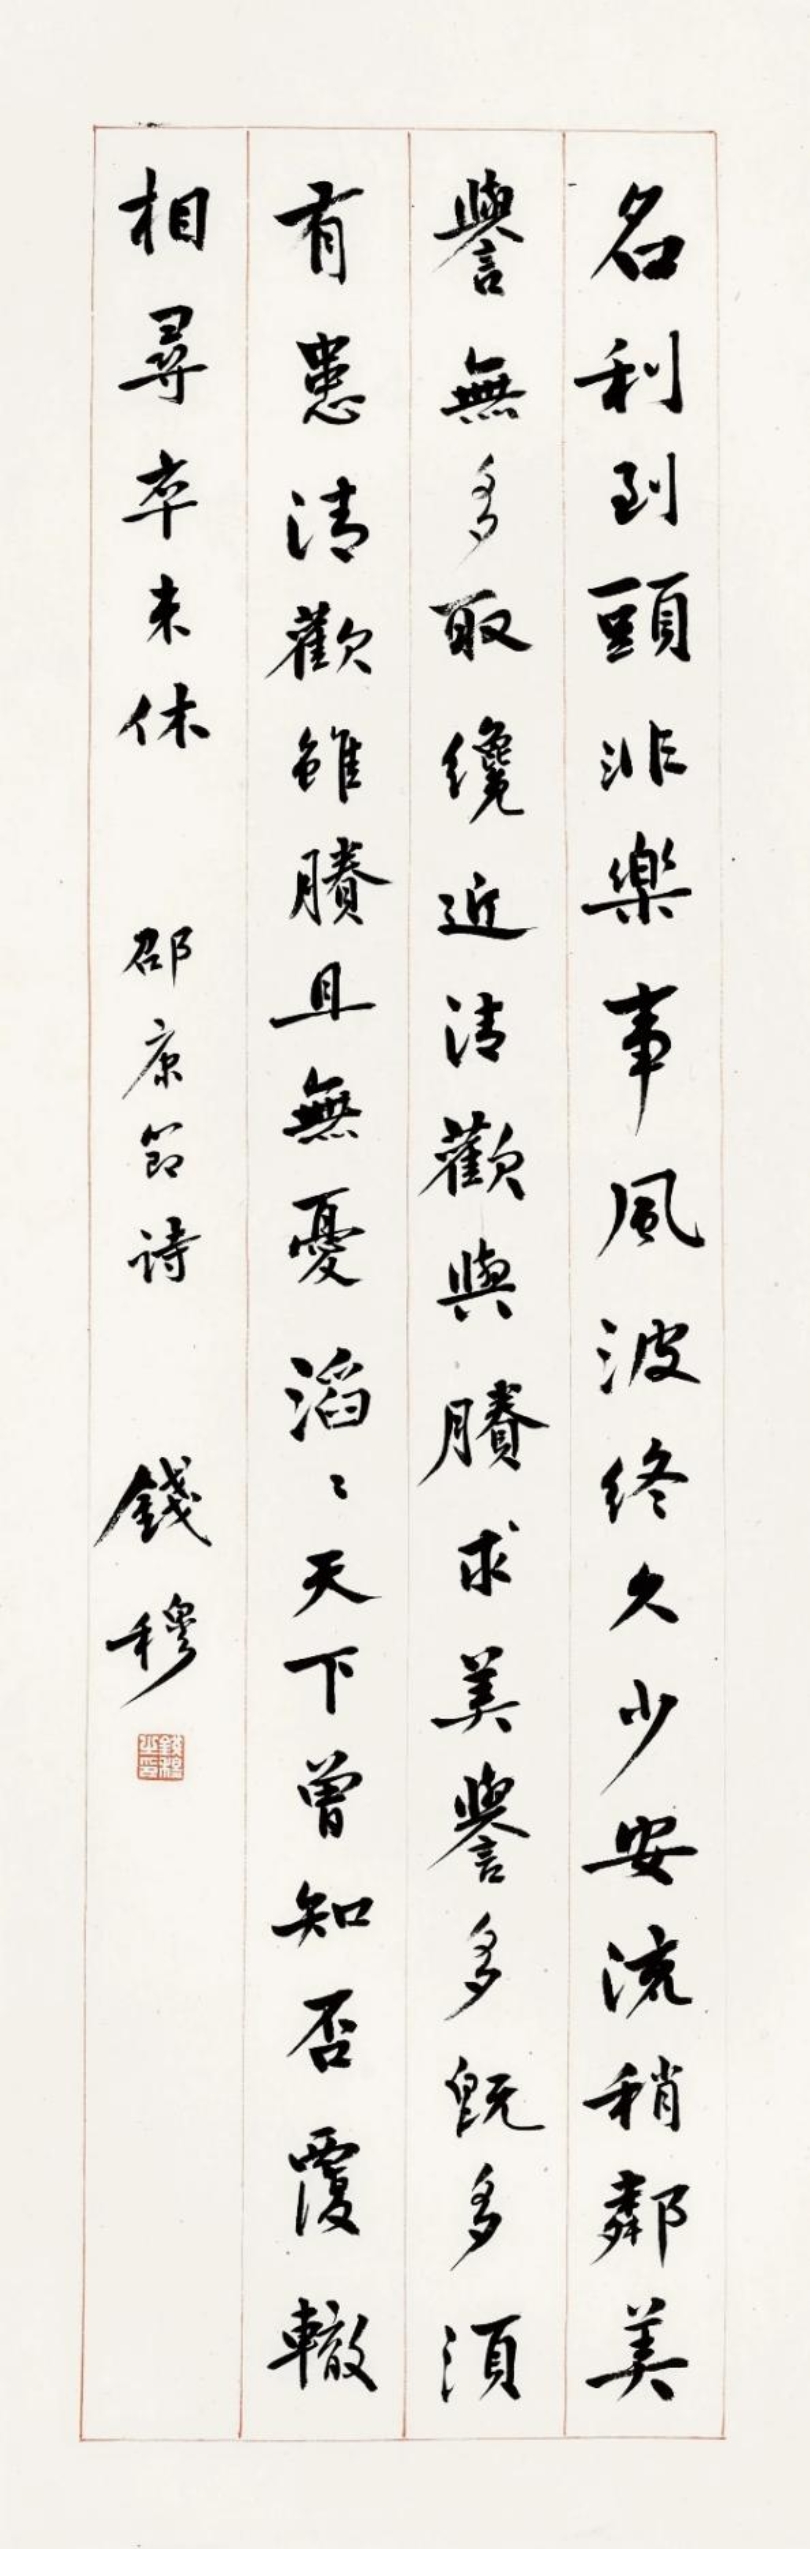 名利到頭非樂事風波終久少安流稍鄰美
譽無多取纔近清歡與賸求美譽多多既多須
有患清歡雖賸且無憂滔〻天下曾知否覆轍
相尋卒未休 邵康節詩 錢穆
錢穆之印